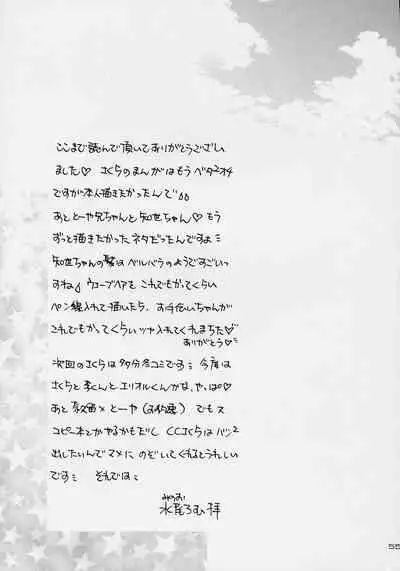 ここまで読んで頂いてありがとうござい
ました♡ さくらのまんがはもうベタ²オチ
ですが本人描きたかったんで
あととーや兄ちゃんと知世ちゃん♡ もう
ずっと描きたかったネタだったんですよ
知世ちゃんの髪はベルバラのようですごいっ
すね ウェーブヘアをこれでもかってくらい
ペン線入れて描いたら、お手伝いちゃんが
これでもかってくらいツヤ入れてくれまちた♡
ありがとう
次回のさくらは多分冬コミです 今度は
さくらと李くんとエリオルくんかな、や、ぱ♡
あと雪兎×とーや(お約束) でもス
コピー本とかやるかもだし CCさくらはバン²
出したいんでマメにのぞいてくれるとうれしい
です それでは
みずお
水尾ろむ拝
55